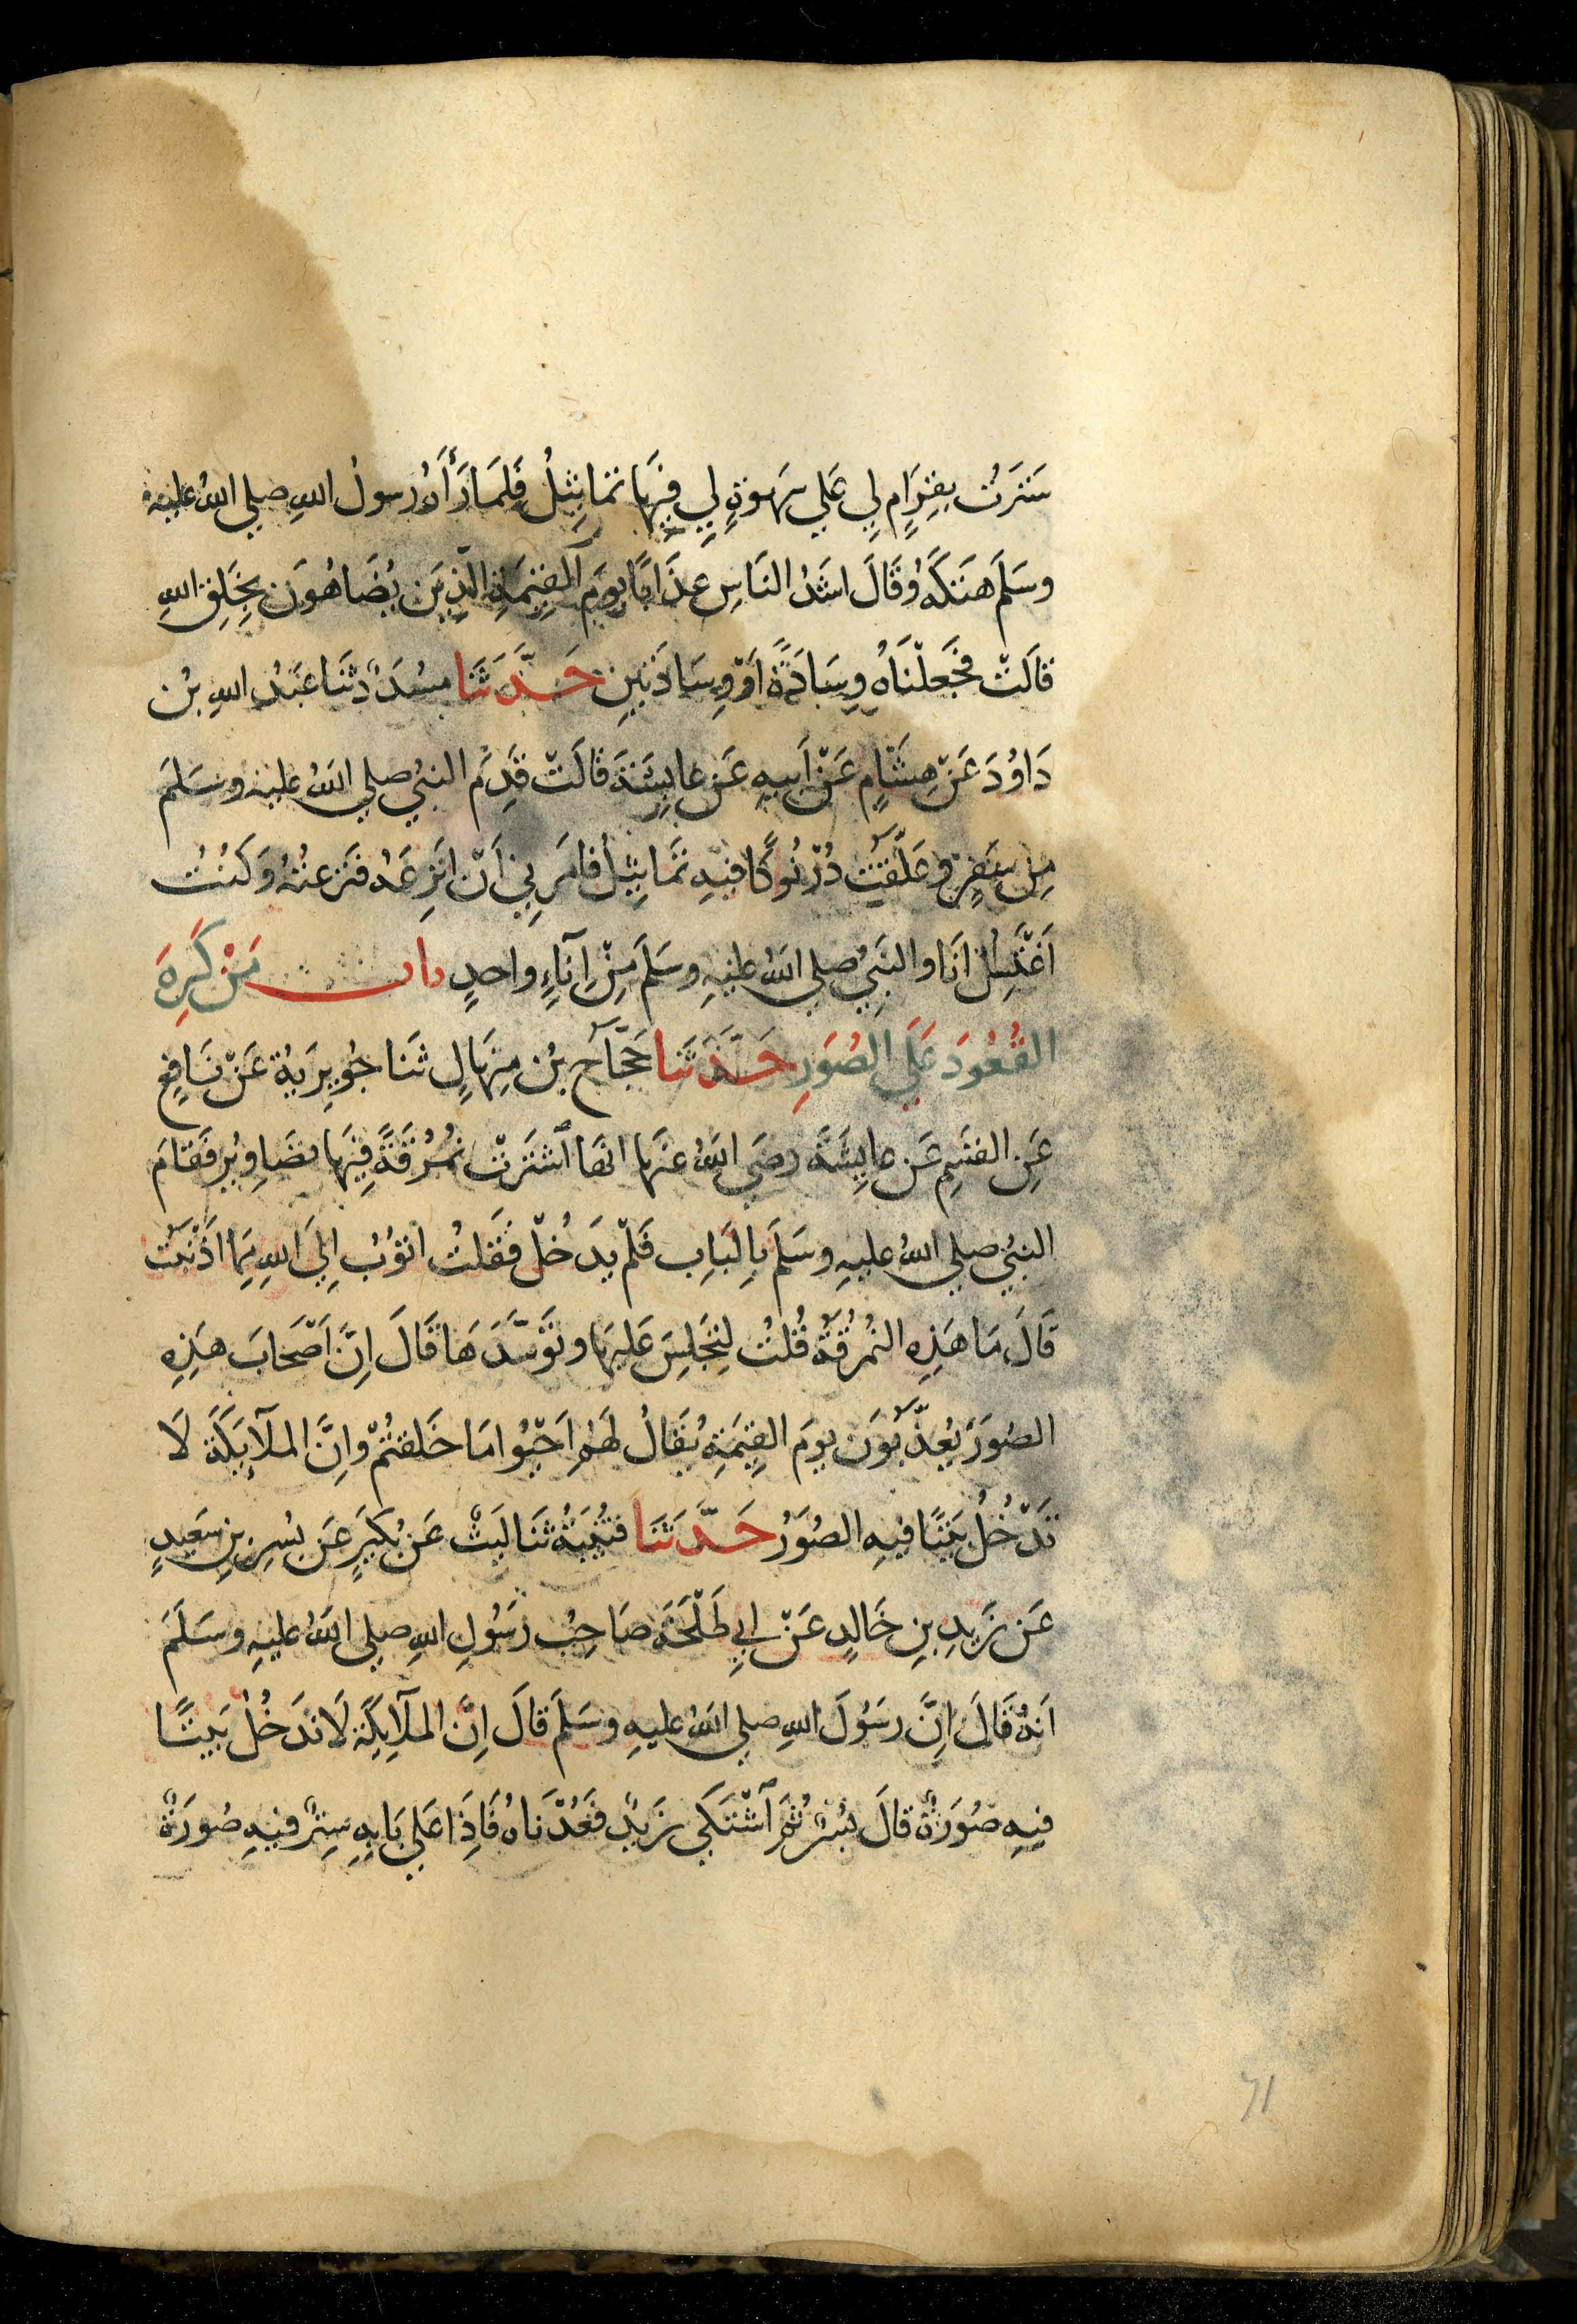 سَتَرَتُ بِقِرَامٍ لِي عَلي سَهوَةٍ لِي فِيهَا تمَاثِيْلُ فَلَمَا رَأَهُ رسولُ اللهِ صلي اللهُ عليه
وسَلَمَ هَتكَهُ وُقَالَ اشَدُ النَاسِ عذَابًا يومَ القِيمَةِ الَّذِينَ يُضَاهُونَ بِخَلِق اللهِ
قالَتْ فجَعلْنَاهُ وِسَادَةً اوْ وِسَادَتَينِ حَدَّثَنا مسُدَدٌ ثنَا عَبدُ اللهِ بنُ
دَاوُدَ عَنْ هِشَامٍ عَنْ اَبيهِ عَن عايِشَةَ قالَتْ قَدِمَ النبيُ صلي اللهُ عليه وسَلمَ
مِن سَفرٍ وعَلَّقتُ دُرْنُوكًا فيهِ تمَاثِيلُ فامَرَنِي اَنْ انزِعَهُ فنَزعتُهُ وَكنُتُ
اَغتَسِلُ انَا والنَبيُ صلي اللهُ عليهِ وسَلمَ مِنْ اِنآءٍ واحدٍ باب مَنْ كَرِهَ
القُعُودَ عَلَي الصُوَرِ حَدَّثَنا حَجّاَج بنُ مِنهَالٍ ثنَا جُويرِيَةُ عَنْ نَافِعٍ
عَنِ القسَمِ عَن عايِشَةَ رضَي اللهُ عنهَا انهَا اشتَرَتْ نُمرُقَةً فِيهَا تصَاوِيُر فَقامَ
النبيُ صلي اللهُ عليهِ وسَلمَ بِالبَابِ فَلمْ يدَخُلْ فقَلتُ اتوُبُ اِلَي اللهِ ممِا اذَنبَتُ
قَالَ مَا هَذِهِ النُمرُقَةُ قُلتُ لِتجَلِسَ عَليهَا وتوَسَّدَهَا قَالَ اِنَّ اَصْحَابَ هذِهِ
الصُوَرَ يُعذَّبُونَ يومَ القِيمَةِ يُقَالُ لهَمُ احَيُوا مَا خَلقتُمْ وانَّ الملآيكَةَ لَا
تَدْخُلُ بيَتًا فيهِ الصُوَرُ حَدَّثَنَا قتُيبَةُ ثنَا ليَثْ عَن بُكَيرٍ عَن بُسِرِ بنِ سَعِيدٍ
عَن زَيدِ بنِ خَالدٍ عَنْ ابي طَلْحَةَ صَاحِبُ رَسُولِ اللهِ صلي اللهُ عليهِ وسَلَمَ
انهُ قَالَ اِنَّ رسَوُلَ اللهِ صلي اللهُ عليهِ وسَلَمَ قَالَ اِنَّ الملآيكَةَ لَا تدَخُلُ بَيتًا
فيهِ صُورَةٌ قالَ بُسْرٌ ثمَّ اَشْتَكَي زَيدٌ فَعُدْنَاهُ فَاِذَا عَلي بَابِهِ سِترٌ فيهِ صُورَةٌ
71